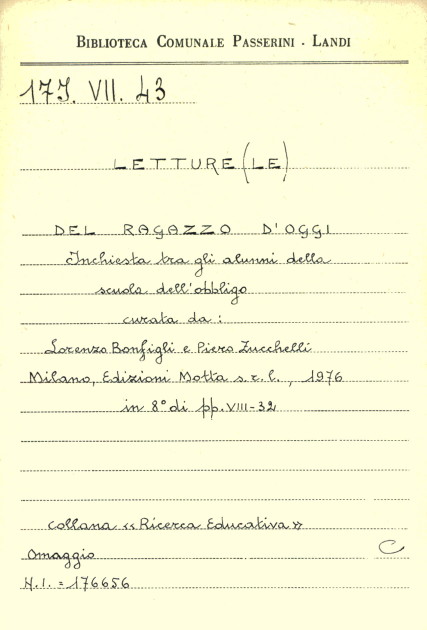 BIBLIOTECA COMUNALE PASSERINI - LANDI
17J. VII. 43
LETTURE (LE)
DEL RAGAZZO D'OGGI
Inchiesta tra gli alunni della
scuola dell'obbligo
curata da:
Lorenzo Bonfigli e Piero Zucchelli
Milano, Edizioni Motta s.r.l., 1976
in 8° di pp. VIII-32
collana «Ricerca Educativa»
omaggio C
N.I. = 176656